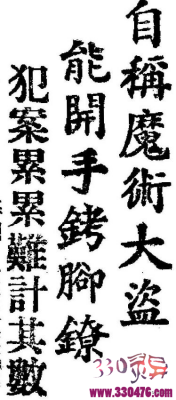 自稱魔術大盜
能開手銬腳鐐
犯案累累難計其數
330灵异
www.330476.com